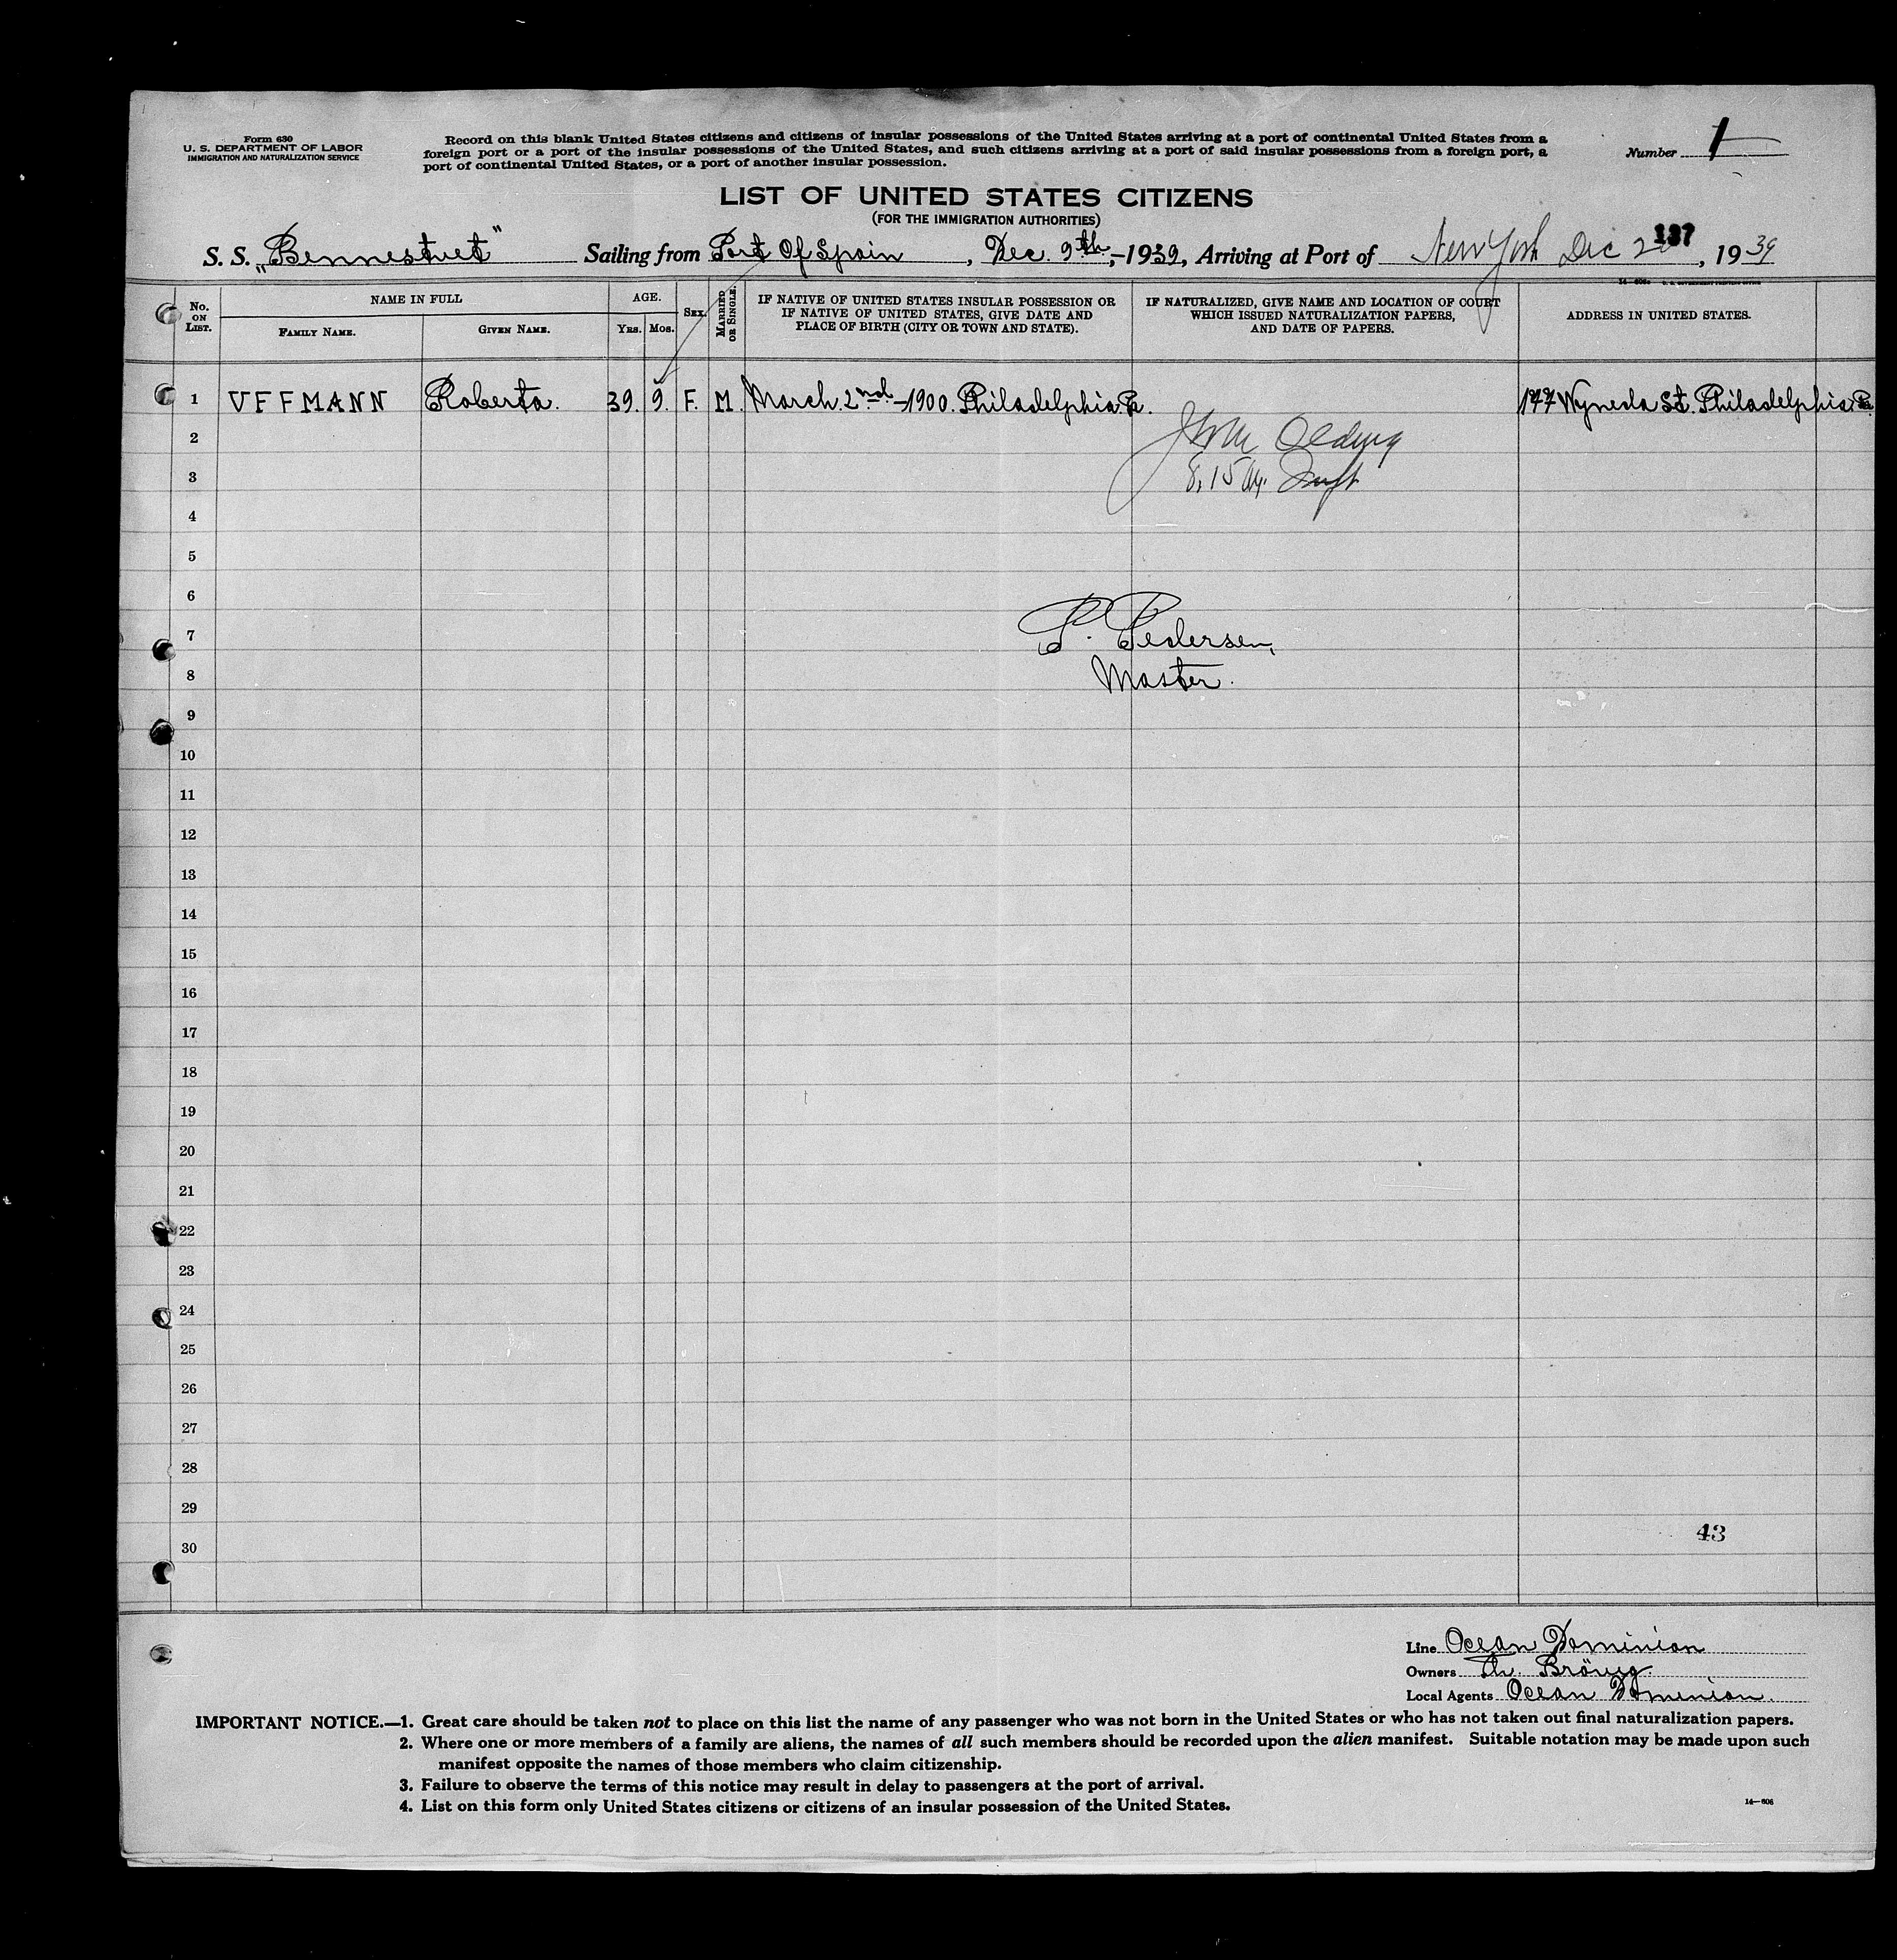 Form 630
U. S. DEPARTMENT OF LABOR
IMMIGRATION AND NATURALIZATION SERVICE
Record on this blank United States citizens and citizens of insular possessions of the United States arriving at a port of continental United States from a
foreign port or a port of the insular possessions of the United States, and such citizens arriving at a port of said insular possessions from a foreign port, a
port of continental United States, or a port of another insular possession.
Number 1
LIST OF UNITED STATES CITIZENS
(FOR THE IMMIGRATION AUTHORITIES)
S. S. „Bennestvet" Sailing from Port Of Spain, Dec. 9th,-1939, Arriving at Port of New York Dec 20 137, 1939
No. ON LIST.
NAME IN FULL
FAMILY NAME.
GIVEN NAME.
AGE.
YRS.
MOS.
SEX.
MARRIED OR SINGLE.
IF NATIVE OF UNITED STATES INSULAR POSSESSION OR
IF NATIVE OF UNITED STATES, GIVE DATE AND
PLACE OF BIRTH (CITY OR TOWN AND STATE).
IF NATURALIZED, GIVE NAME AND LOCATION OF COURT
WHICH ISSUED NATURALIZATION PAPERS,
AND DATE OF PAPERS.
ADDRESS IN UNITED STATES.
1 UFFMANN Roberta. 39. 9. F. M. March 2nd-1900. Philadelphia.Pa. 177 Wyneda St. Philadelphia.Pa.
2
3 8.15
4
5
6
7 P. Pedersen,
8 Master.
9
10
11
12
13
14
15
16
17
18
19
20
21
22
23
24
25
26
27
28
29
43
30
Line Ocean Dominion
Owners Th. Brövig.
Local Agents Ocean Dominion.
IMPORTANT NOTICE.—1. Great care should be taken not to place on this list the name of any passenger who was not born in the United States or who has not taken out final naturalization papers.
2. Where one or more members of a family are aliens, the names of all such members should be recorded upon the alien manifest. Suitable notation may be made upon such
manifest opposite the names of those members who claim citizenship.
3. Failure to observe the terms of this notice may result in delay to passengers at the port of arrival.
4. List on this form only United States citizens or citizens of an insular possession of the United States.
14—606